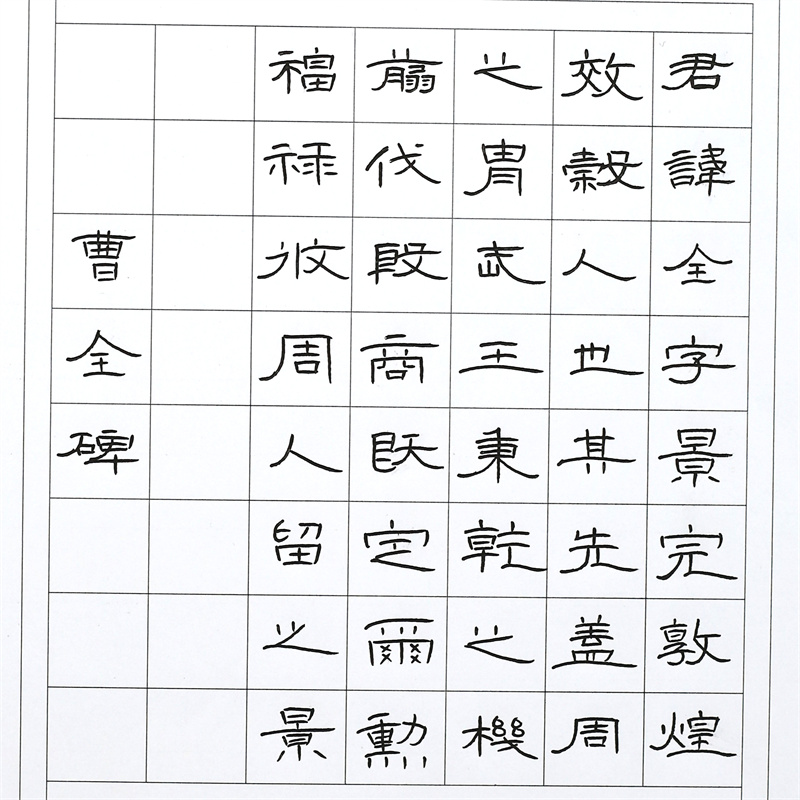 君諱全字景完敦煌
效穀人也其先蓋周
之胄武王秉乾之機
翦伐殷商既定爾勳
福祿攸周人留之景
曹全碑